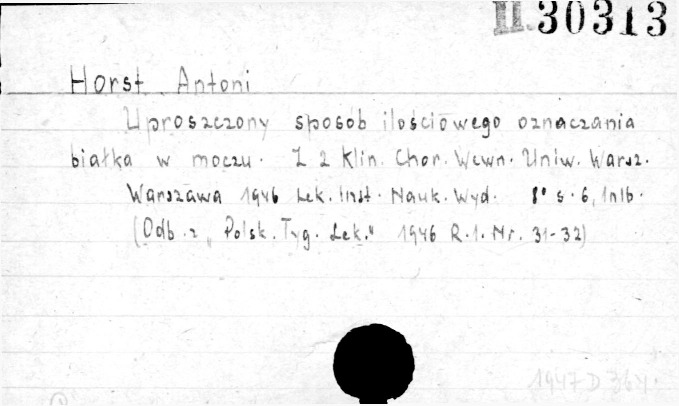 II.30313
Horst Antoni
Uproszczony sposób ilościowego oznaczania
białka w moczu. Z 2 Klin. Chor. Wewn. Uniw. Warsz.
Warszawa 1946 Lek. Inst. Nauk. Wyd. 8° s. 6, 1 nlb.
(Odb. z „Polsk. Tyg. Lek." 1946 R. 1. Nr. 31-32)
1947 D 364.